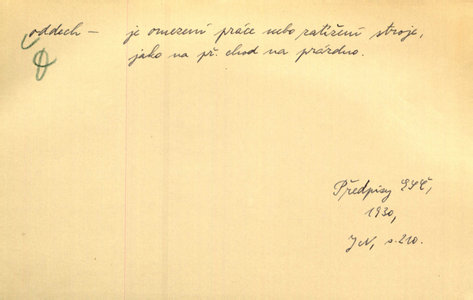 oddech – je omezení práce nebo zatížení stroje,
jako na př. chod na prázdno.
Předpisy ESČ,
1930,
JN, s. 210.